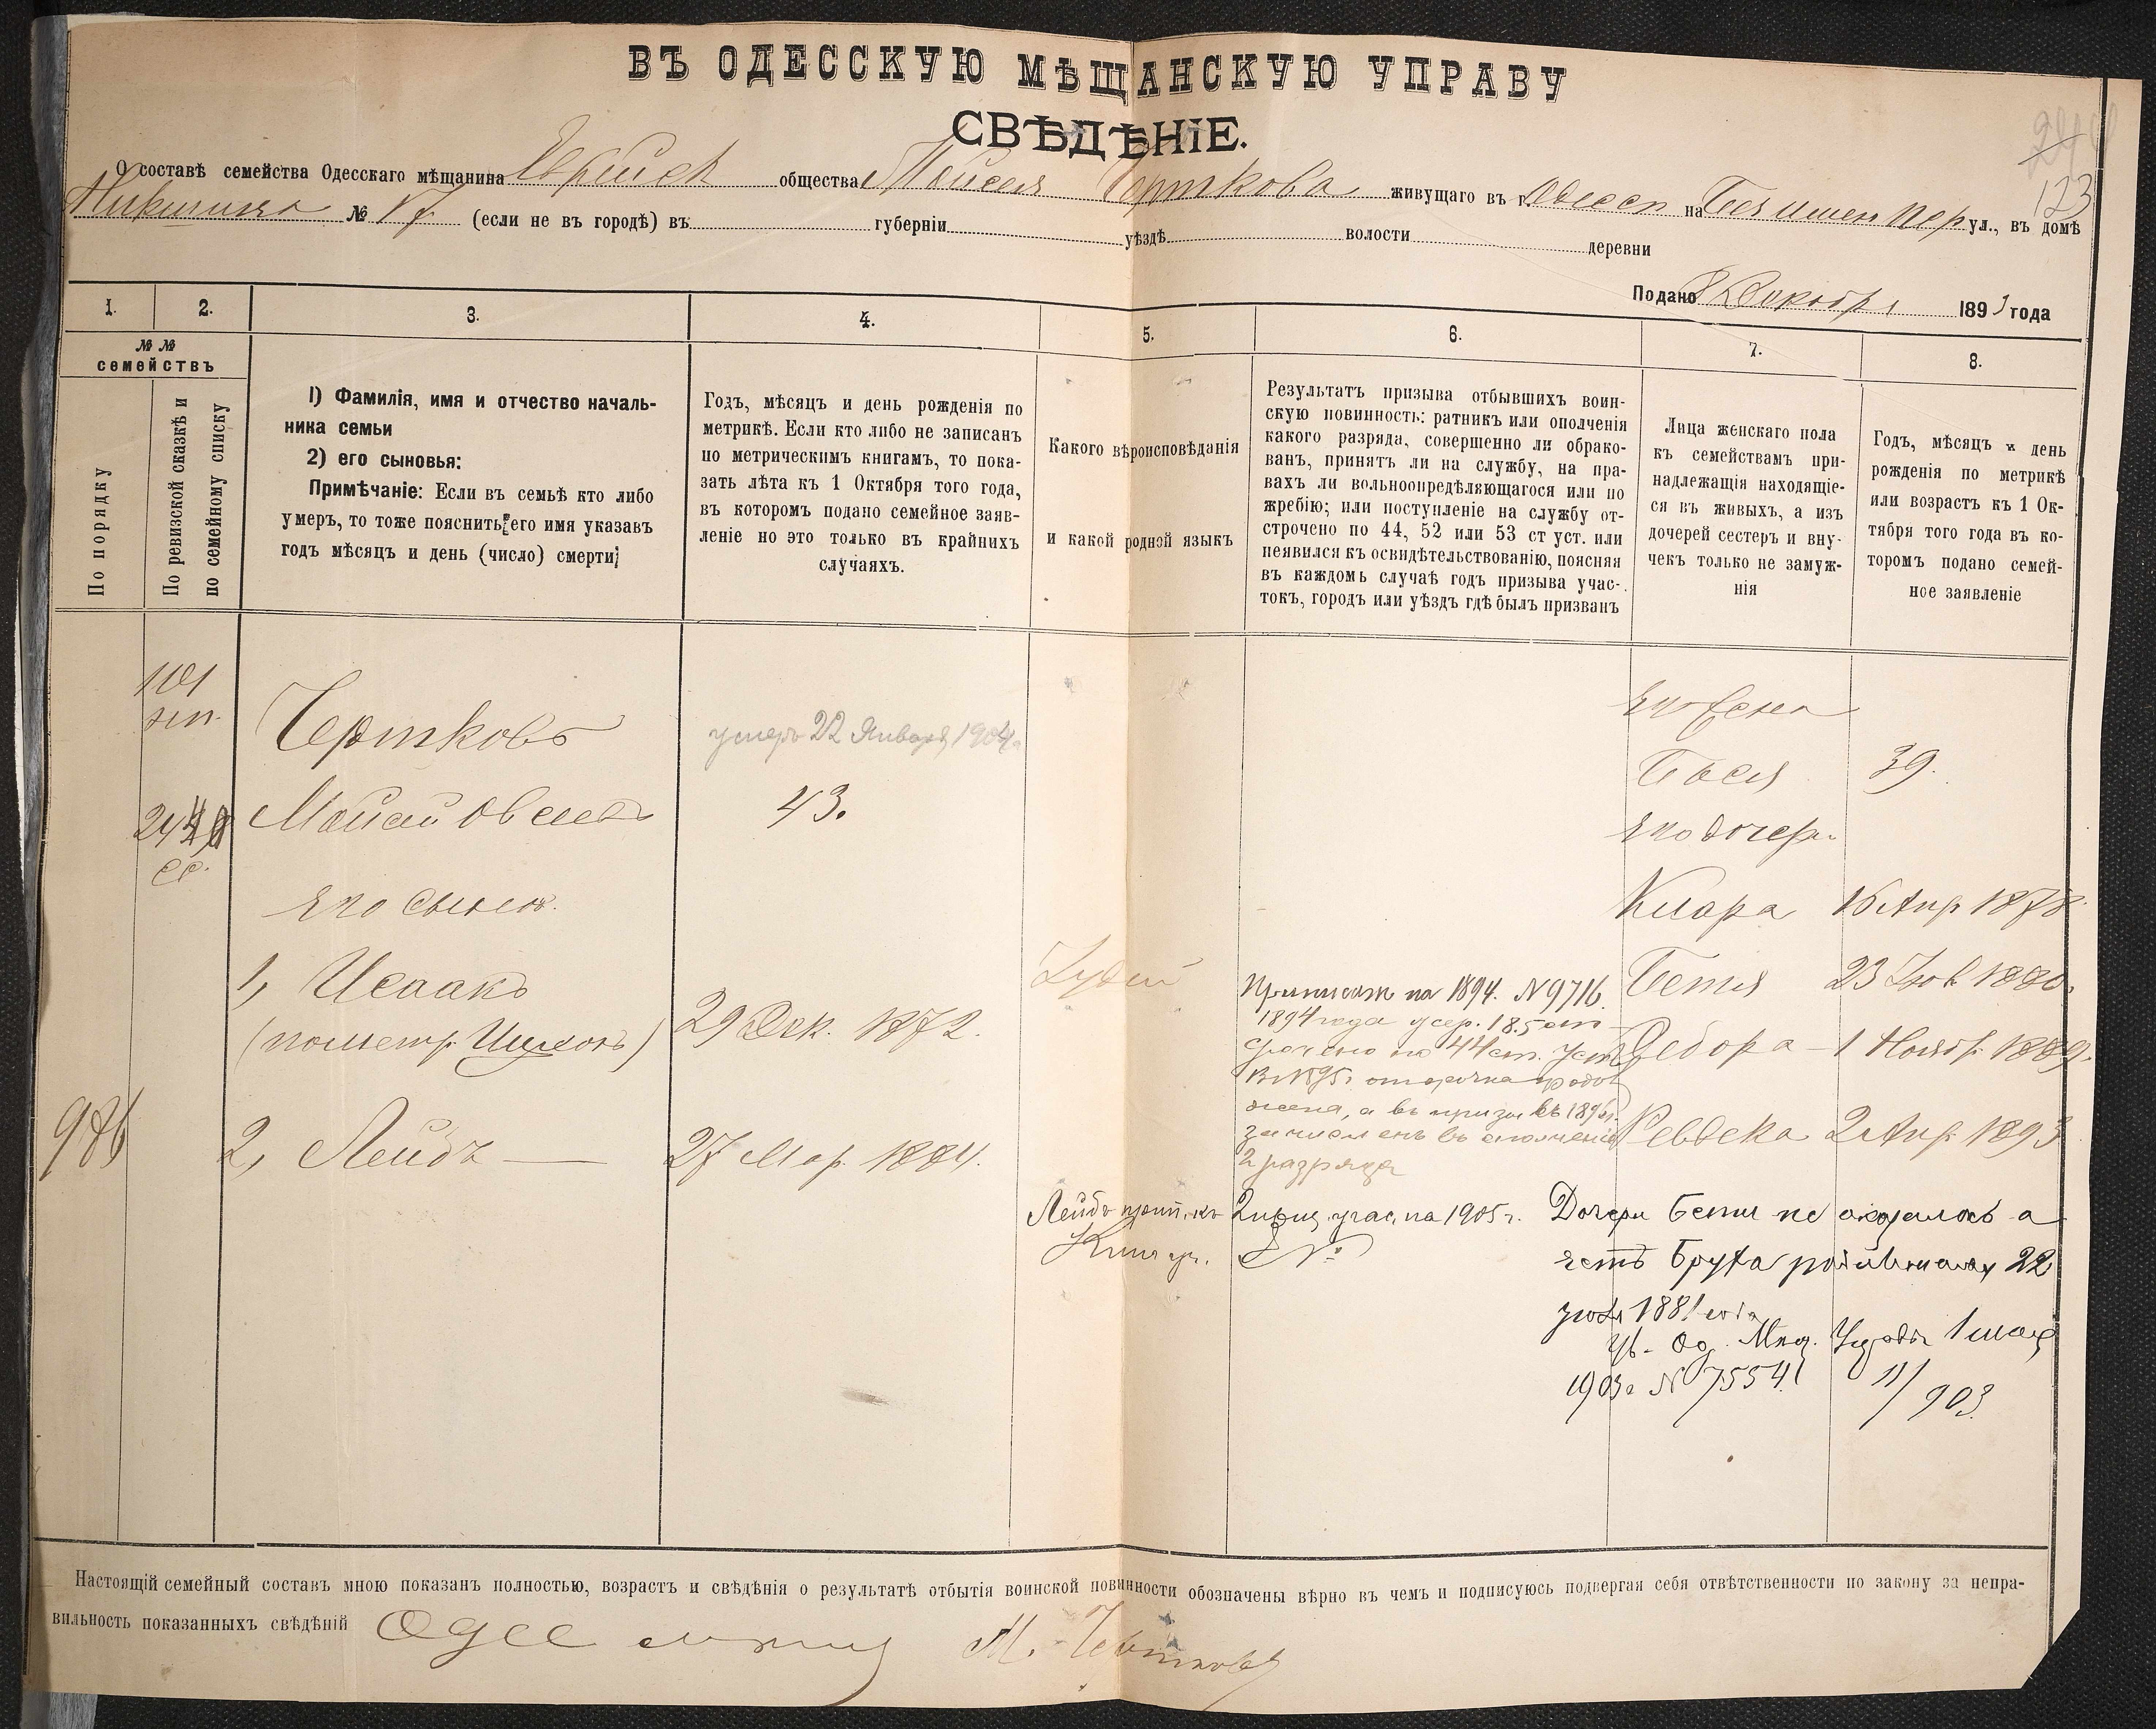 ВЪ ОДЕССКУЮ МѢЩАНСКУЮ УПРАВУ
СВѢДѢНІЕ.
О составѣ семейства Одесскаго мѣщанина Еврейск общества Мойсея Черткова живущаго въ г. Одессѣ на Безимен пер ул., въ домѣ
№ 17 (если не въ городѣ) въ губерніи уѣздѣ волости деревни
123
Подано 8 Декабря 1893 года
1.
2.
3.
4.
5.
6.
7.
8.
№ №
семействъ
По порядку
По ревизской сказкѣ и
по семейному списку
1) Фамилія, имя и отчество началь-
ника семьи
2) его сыновья:
Примѣчаніе: Если въ семьѣ кто либо
умеръ, то тоже пояснить его имя указавъ
годъ мѣсяцъ и день (число) смерти;
Годъ, мѣсяцъ и день рожденія по
метрикѣ. Если кто либо не записанъ
по метрическимъ книгамъ, то пока-
зать лѣта къ 1 Октября того года,
въ которомъ подано семейное заяв-
леніе но это только въ крайнихъ
случаяхъ.
Какого вѣроисповѣданія
и какой родной языкъ
Результатъ призыва отбывшихъ воин-
скую повинность: ратникъ или ополченія
какого разряда, совершенно ли обрако-
ванъ, принятъ ли на службу, на пра-
вахъ ли вольноопредѣляющагося или по
жребію; или поступленіе на службу от-
строчено по 44, 52 или 53 ст уст. или
неявился къ освидѣтельствованію, поясняя
въ каждомъ случаѣ годъ призыва учас-
токъ, городъ или уѣздъ гдѣ былъ призванъ
Лица женскаго пола
къ семействамъ при-
надлежащія находящіе-
ся въ живыхъ, а изъ
дочерей сестеръ и вну-
чекъ только не замуж-
нія
Годъ, мѣсяцъ и день
рожденія по метрикѣ
или возрастъ къ 1 Ок-
тября того года въ ко-
торомъ подано семей-
ное заявленіе
101
Чертковъ
умеръ 22 Января 1904 г
Его жена
Бася 39.
43.
Его дочери
Его сыновя
Клара 16 Апр 1878
1, Исаакъ
29 Дек. 1872.
Іудей
Приписан на 1894. N 9716.
1894 года
срочено по 44 ст. Уст
2 разряда
Бетя 23 Іюв 1880.
Дебора - 1 Ноябр. 1889.
986
2, Лейбъ
27 Мар. 1884.
Ревека 2 Апр. 1893
Лейбъ прип. къ 2 приз. учас. на 1905 г.
№
Дочери Бети не оказалось а
есть Бруха родившаяся 22
1881 года
Ув. Од. Мѣщ. Управы 1 мая
1903 г N 7554.
11/903
Настоящій семейный составъ мною показанъ полностью, возрастъ и свѣдѣнія о результатѣ отбытія воинской повинности обозначены вѣрно въ чемъ и подписуюсь подвергая себя отвѣтственности по закону за непра-
вильность показанныхъ свѣдѣній
М. Чертковъ